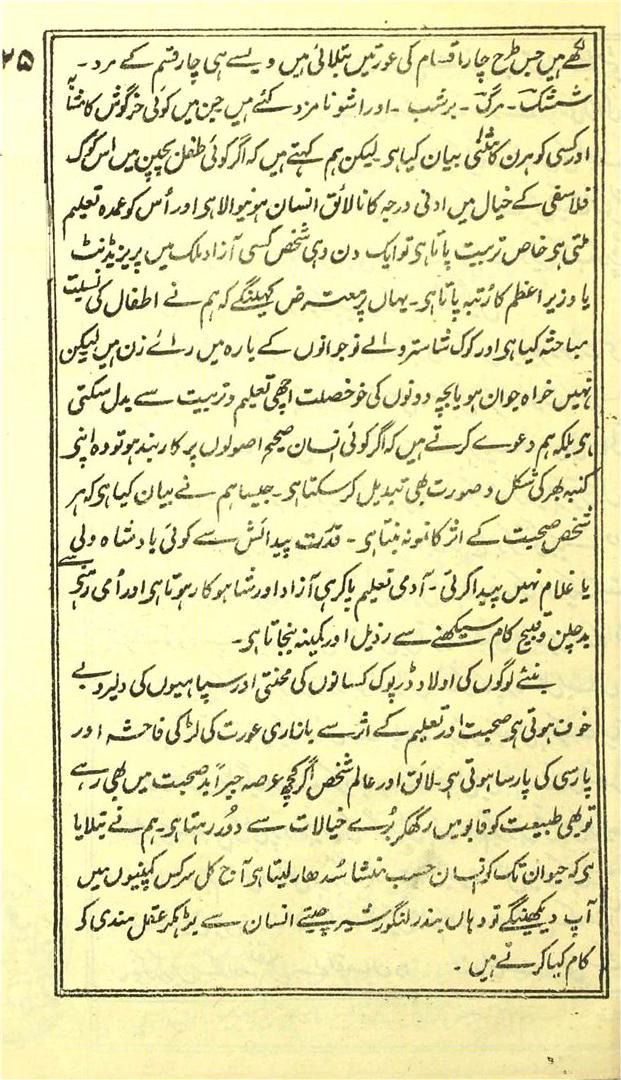 ۲۵
لکھے ہیں جس طرح چار اقسام کی عورتیں بتلائی ہیں ویسے ہی چار قسم کے مرد۔
ششک۔ مرگ۔ برشب۔ اور اشونا مزد کئے ہیں جن میں کوئی خرگوش کا مثنٰے
اور کسی کو ہرن کا مثنٰی بیان کیا ہی۔ لیکن ہم کہتے ہیں کہ اگر کوئی طفل بچپن میں اس کوک
فلاسفی کے خیال میں ادنی درجہ کا نالائق انسان ہونیوالا ہی اور اُس کو عمدہ تعلیم
ملتی ہی خاص تربیت پاتا ہی تو ایک دن وہی شخص کسی آزاد ملک میں پریزیڈنٹ
یا وزیر اعظم کا رُتبہ پاتا ہی۔ یہاں پر معترض کہیں گے کہ ہم نے اطفال کی نسبت
مباحثہ کیا ہی اور کوک شاستر والے نوجوانوں کے بارہ میں رائے زن ہیں لیکن
نہیں خواہ جوان ہو یا بچہ دونوں کی خو خصلت اچھی تعلیم و تربیت سے بدل سکتی
ہی بلکہ ہم دعوے کرتے ہیں کہ اگر کوئی انسان صحیح اصولوں پر کاربند ہو تو وہ اپنی
کنبہ بھر کی شکل و صورت بھی تبدیل کر سکتا ہی۔ جیسا ہم نے بیان کیا ہی کہ ہر
شخص صحبت کے اثر کا نمونہ بنتا ہی۔ قدرت پیدائش سے کوئی بادشاہ ولی
یا غلام نہیں پیدا کرتی۔ آدمی تعلیم پاکر ہی آزاد اور شاہوکار ہوتا ہی اور اُمی رہنے سے
بدچلن و قبیح کام سیکھنے سے رذیل اور کمینہ بنجاتا ہی۔
بنئے لوگوں کی اولاد ڈرپوک کسانوں کی محنتی اور سپاہیوں کی دلیر و بے
خوف ہوتی ہی صحبت اور تعلیم کے اثر سے بازاری عورت کی لڑکی فاحشہ اور
پارسی کی پارسا ہوتی ہی۔ لائق اور عالم شخص اگر کچھ عرصہ جبراً بد صحبت میں بھی رہے
تو بھی طبیعت کو قابو میں رکھکر بُرے خیالات سے دُور رہتا ہی۔ ہم نے بتلایا
ہی کہ حیوان تک کو انسان حسب منشا سُدھار لیتا ہی آج کل سرکس کمپنیوں میں
آپ دیکھینگے تو وہاں بندر لنگور شیر چیتے انسان سے بڑھکر عقلمندی کے
کام کیا کرتے ہیں۔